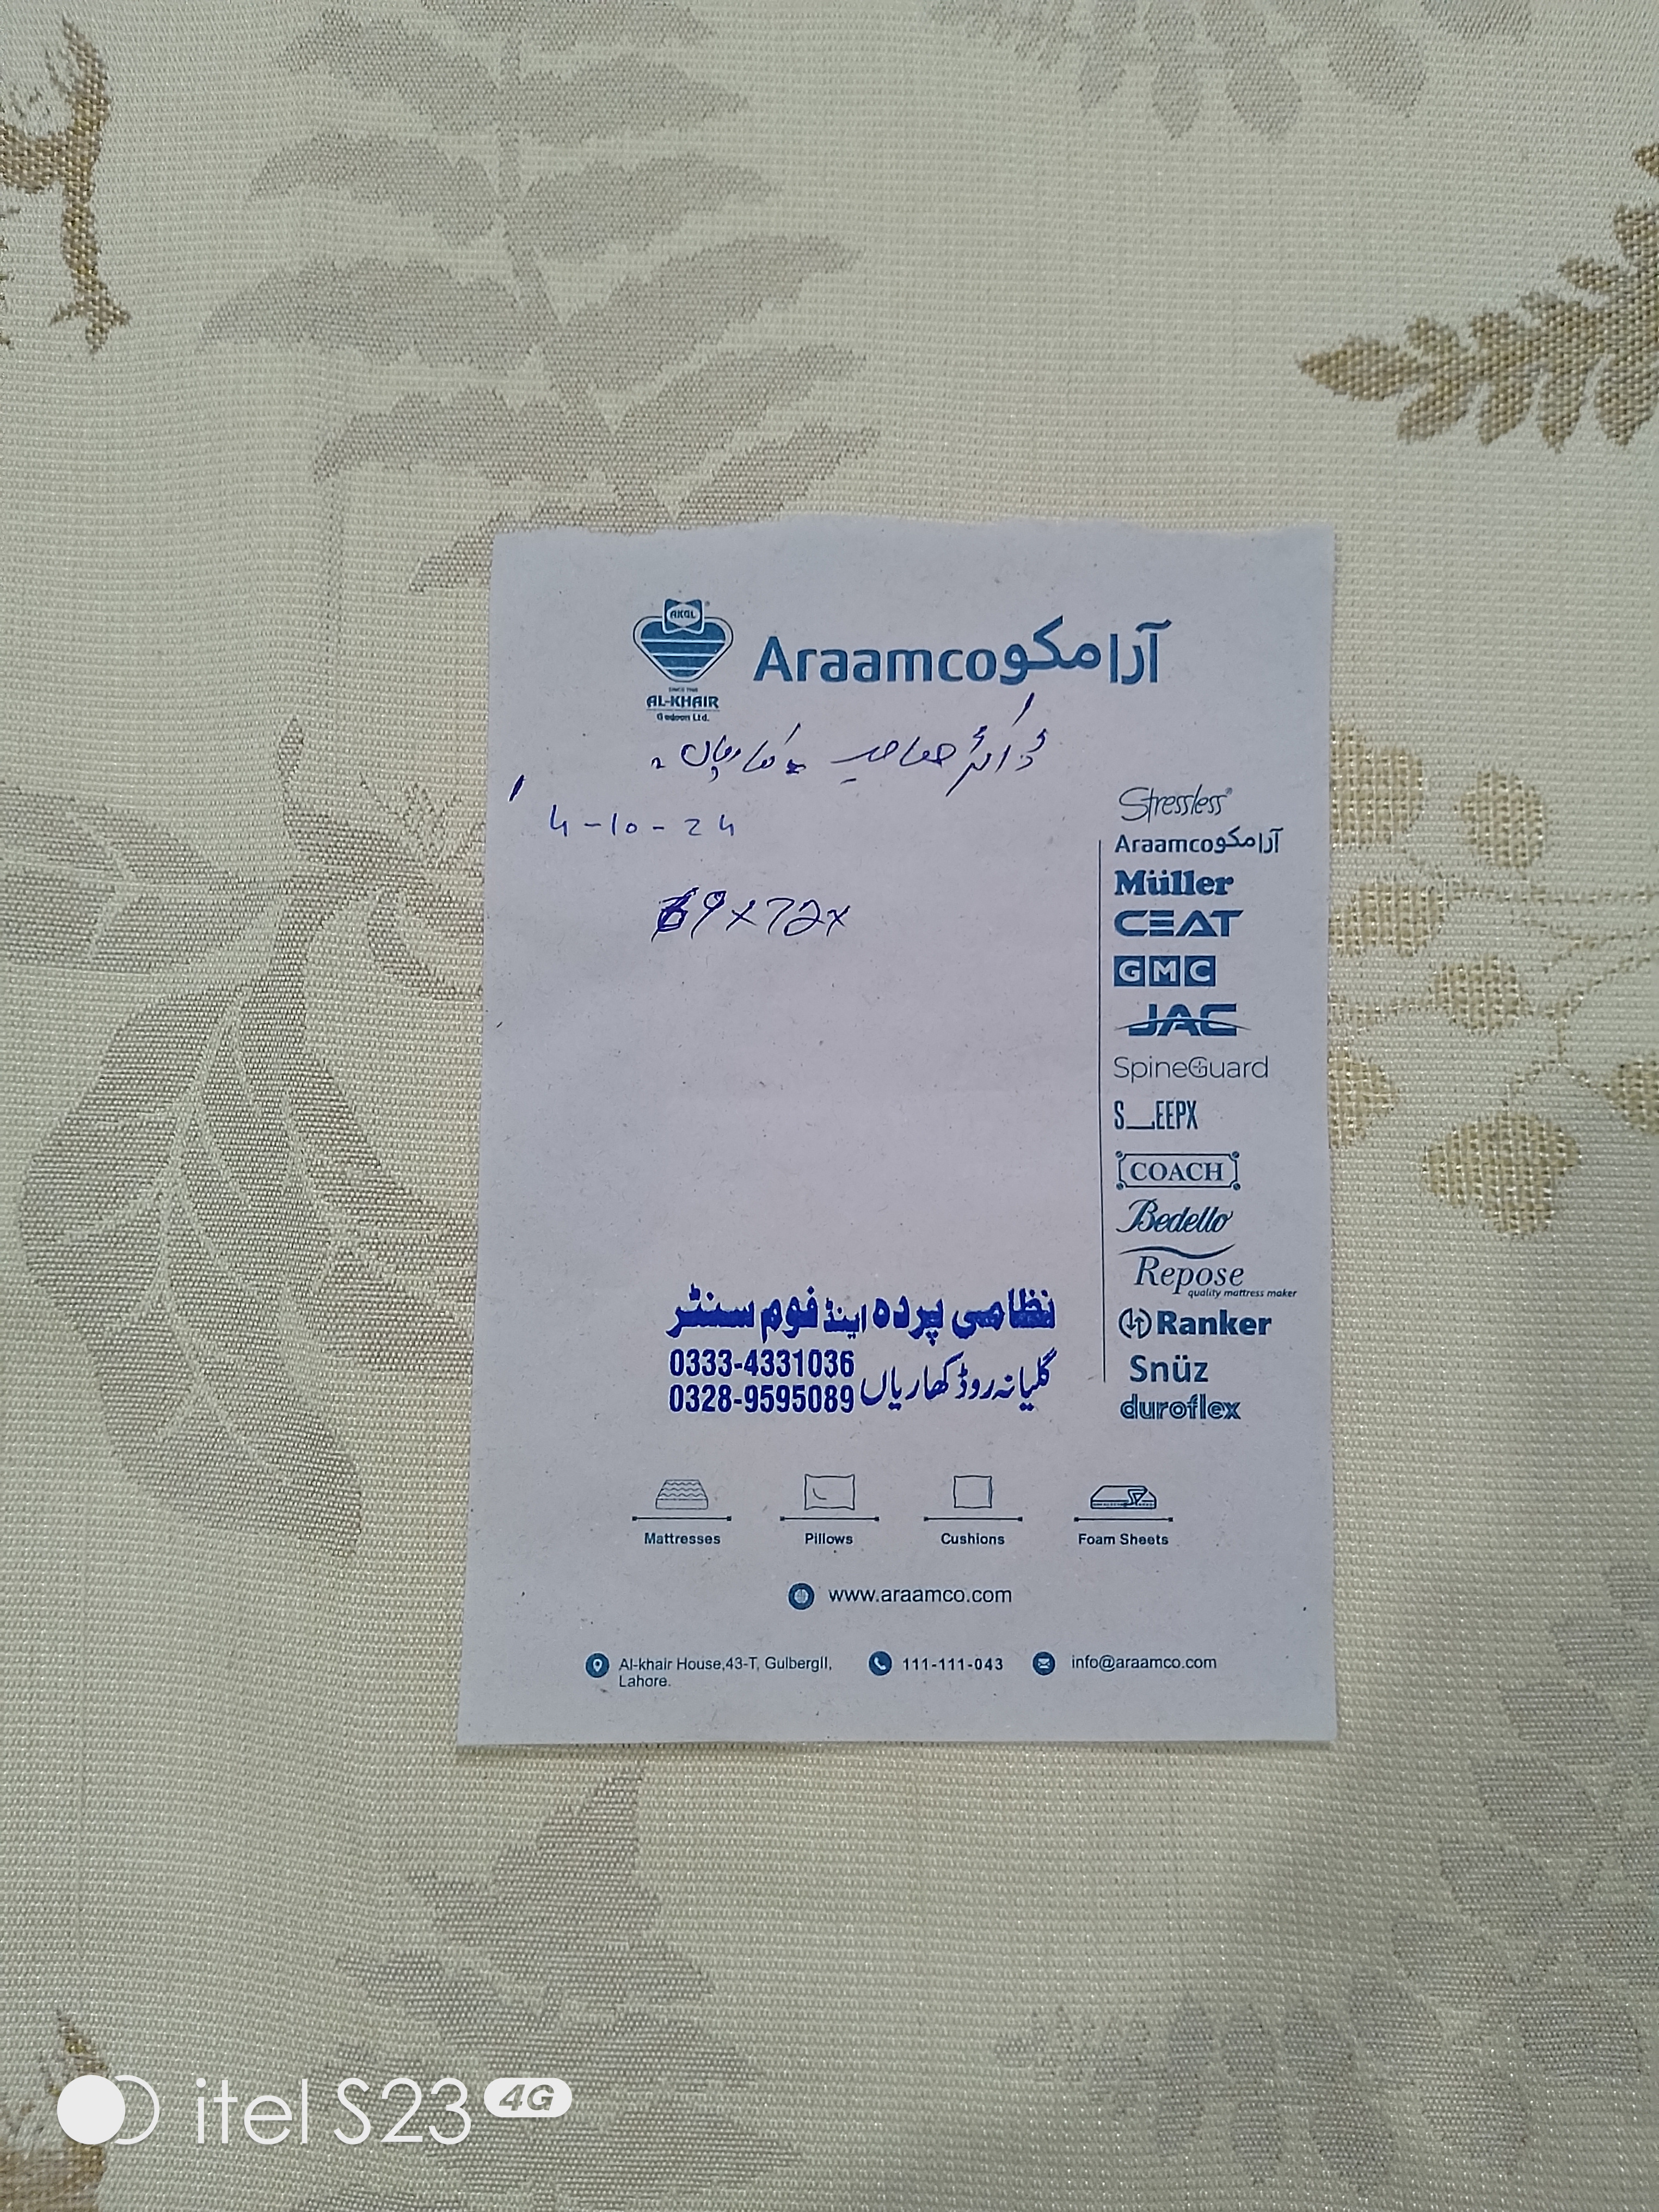 AKGL
SINCE 1966
AL-KHAIR
Gadoon Ltd.
Araamco آرامکو
ڈاکٹر صاحب کھاریاں
4-10-24
69x72x
Stressless
Araamco آرامکو
Müller
CEAT
GMC
JAC
SpineGuard
S_EEPX
COACH
Bedello
Repose
quality mattress maker
Ranker
Snüz
duroflex
نظامی پردہ اینڈ فوم سنٹر
0333-4331036
0328-9595089
گلیانہ روڈ کھاریاں
Mattresses
Pillows
Cushions
Foam Sheets
www.araamco.com
Al-khair House,43-T, GulbergII,
Lahore.
111-111-043
info@araamco.com
itel S23 4G